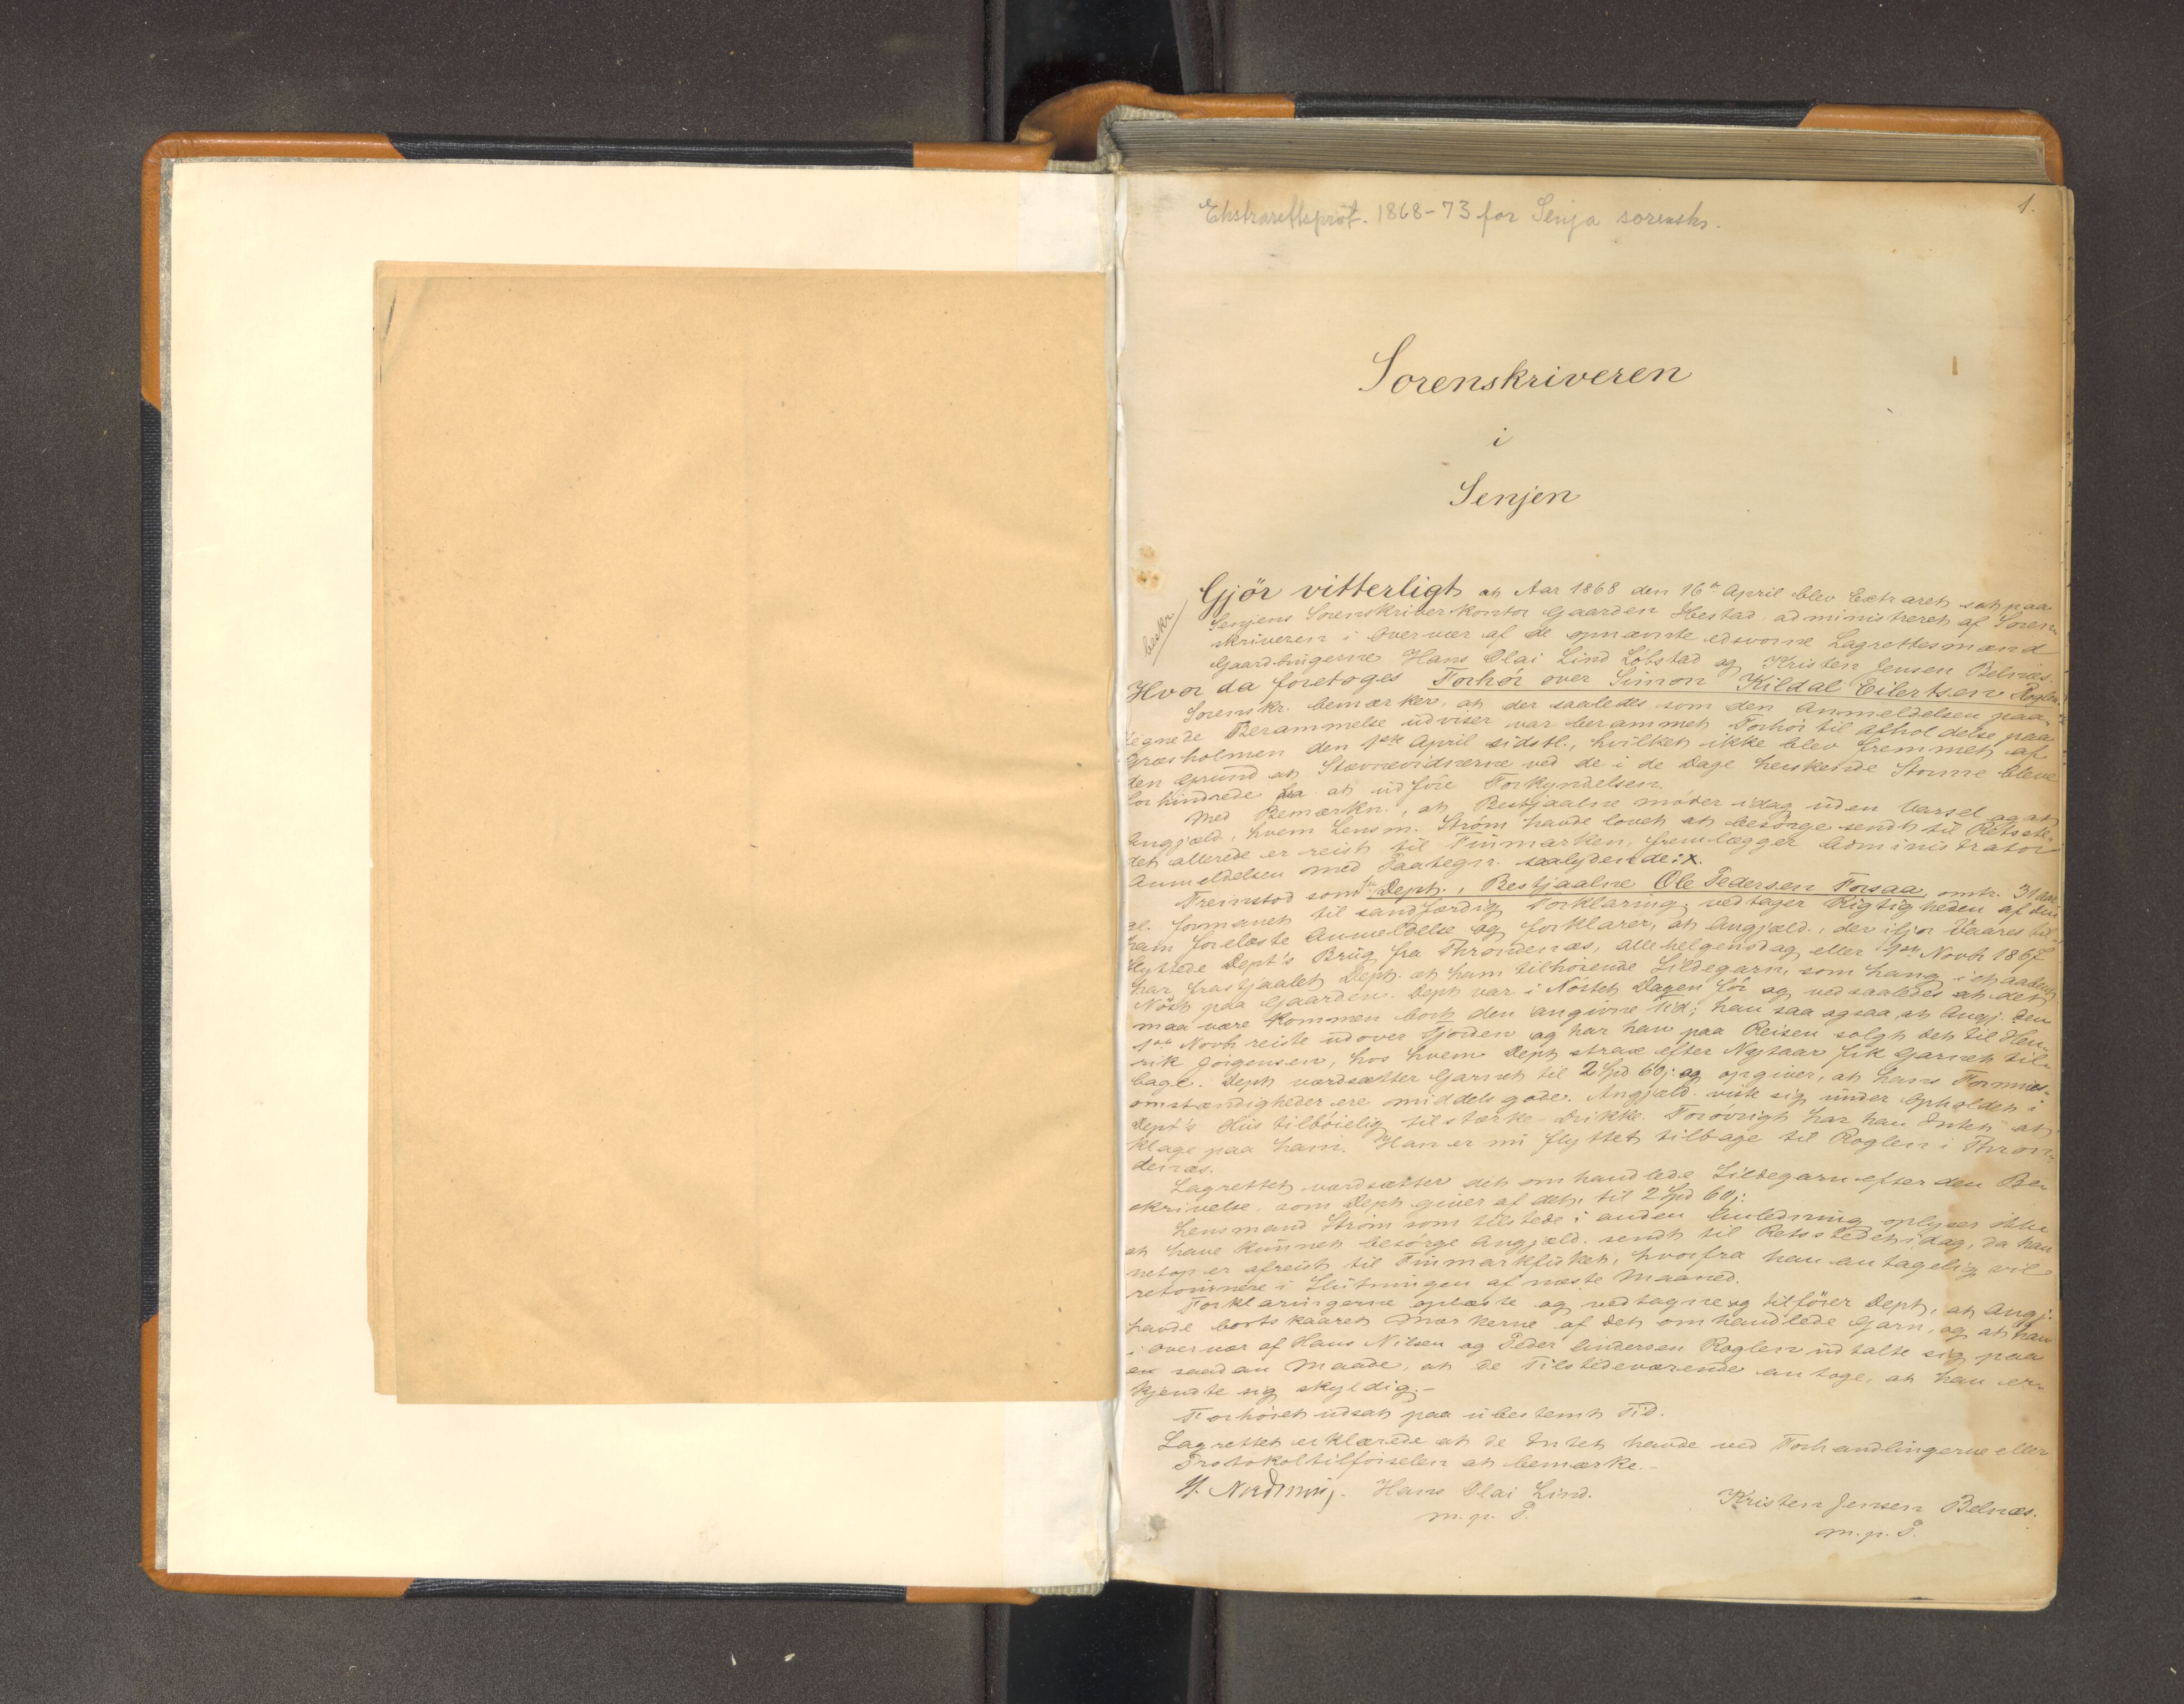 Ekstrarettsprot. 1868-73 for Senja sorenskr.
1.
Sorenskriveren
i
Senjen
beskr.
Gjör vitterligt at Aar 1868 den 16de April blev Extraret sat paa
Senjens Sorenskriverkontor Gaarden Hestad administreret af Soren-
skriveren i Overvær af de opnævnte edsvorne Lagrettesmænd
Gaardbrugerne Hans Olai Lind Löbstad og Kristen Jensen Belnæs.
Hvor da foretoges Forhör over Simon Kildal Eilertsen Roglen.
Sorenskr. bemærker, at der saaledes som den Anmeldelsen paa-
tegnede Berammelse udviser var berammet Forhör til Afholdelse paa
Græsholmen den 1ste April sidstl., hvilket ikke blev fremmet af
den Grund at Stævnevidnerne ved de i de Dage herskende Storme bleve
forhindrede fra at udföre Forkyndelsen.
Med Bemærkn., at Bestjaalne möder idag uden Varsel og at
Angjæld., hvem Lensm. Ström havde lovet at besörge sendt til Retsste-
det allerede er reist til Finmarken, fremlægger Administrator
Anmeldelsen med Paategn. saalydende: x.
Fremstod som 1ste Dept., Bestjaalne Ole Pedersen Forsaa, omtr. 31 Aar
gl. formanet til sandfærdig Forklaring; vedtager Rigtigheden af den
ham forelæste Anmeldelse og forklarer, at Angjæld., der ifjor Vaares til-
flyttede Dept's Brug fra Throndenæs, allehelgensdag eller 1ste Novbr 1867
har frastjaalet Dept. et ham tilhörende Sildegarn, som hang i et aabent
Nöst paa Gaarden. Dept var i Nöstet Dagen för og ved saaledes at det
maa være kommen bort den angivne Tid; han saa ogsaa, at Angj. den
1ste Novbr reiste udover Fjorden og har han paa Reisen solgt det til Hen-
rik Jörgensen, hos hvem Dept strax efter Nytaar fik Garnet til-
bage. Dept værdsætter Garnet til 2 Spd 60 s. og opgiver, at hans Formues-
omstændigheder ere middels gode. Angjæld. viste sig under Opholdet i
Dept's Hus tilböielig til stærke Drikke. Forövrigt har han Intet at
klage paa ham. Han er nu flyttet tilbage til Roglen i Thron-
denæs.
Lagrettet værdsætter det omhandlede Sildegarn efter den Be-
skrivelse, som Dept giver af det, til 2 Spd 60 s.
Lensmand Ström som tilstede i anden Anledning oplyser ikke
at have kunnet besörge Angjæld. sendt til Retsstedet idag, da han
netop er afreist til Finmarkfisket, hvorfra han antagelig vil
retournere i Slutningen af næste Maaned.
Forklaringerne oplæste og vedtagne og tilföier Dept, at Angj.
havde bortskaaret Mærkerne af det omhandlede Garn, og at han
i Overvær af Hans Nilsen og Peder Andersen Roglen udtalte sig paa
en saadan Maade, at de Tilstedeværende antoge, at han er-
kjendte sig skyldig.-
Forhöret udsat paa ubestemt Tid.
Lagrettet erklærede at de Intet havde ved Forhandlingerne eller
Protokoltilförselen at bemærke.-
Hans Olai Lind.
m. p. P.
Kristen Jensen Belnæs.
m. p. P.